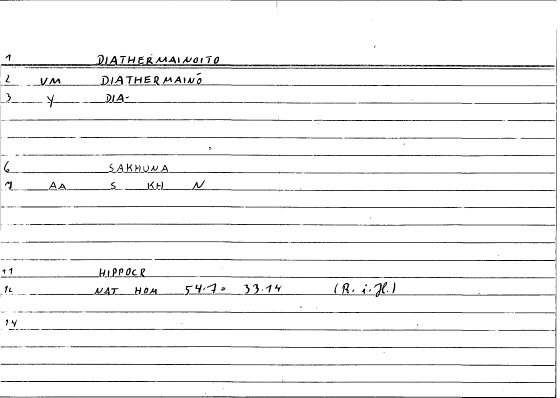 1 DIATHERMAINOITO
2 VM DIATHERMAINŌ
3 Y DIA-
6 SAKHUNA
7 AA S KH N
11 HIPPOCR
12 NAT HOM 54.7= 33.14 (R. i. H.)
14